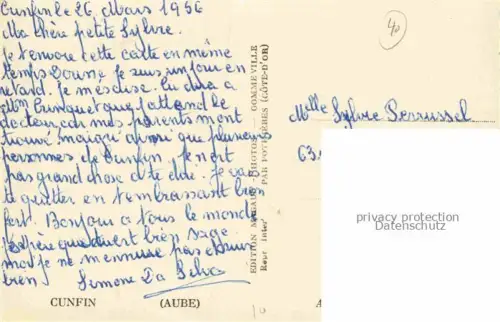 Cunfin le 26 Mars 1956
Ma chère petite Sylvie.
Je t'envoie cette carte en même
temps Donne je suis un jour en
retard. Je m'escuse. tu dira a
Mm que j'attend le
docteur car mes parents m'ont
trouvé maigri ainsi que plusieurs
personnes de Cunfin. Je n'ort
pas grand chose a te dire. Je vai
te quitter en t'embrassant bien
fort. Bonjour a tous le monde
J'espère que Duvert bien sage
moi je ne m'ennuie pas
bien. Simone Da Silva
CUNFIN (AUBE)
EDITION MIGARD - PHOTO - GOMMEVILLE
Rect inter PAR POTHIÈRES (CÔTE-D'OR)
40
Melle Sylvie Perrussel
63
privacy protection
DARMKO.COM
10
A